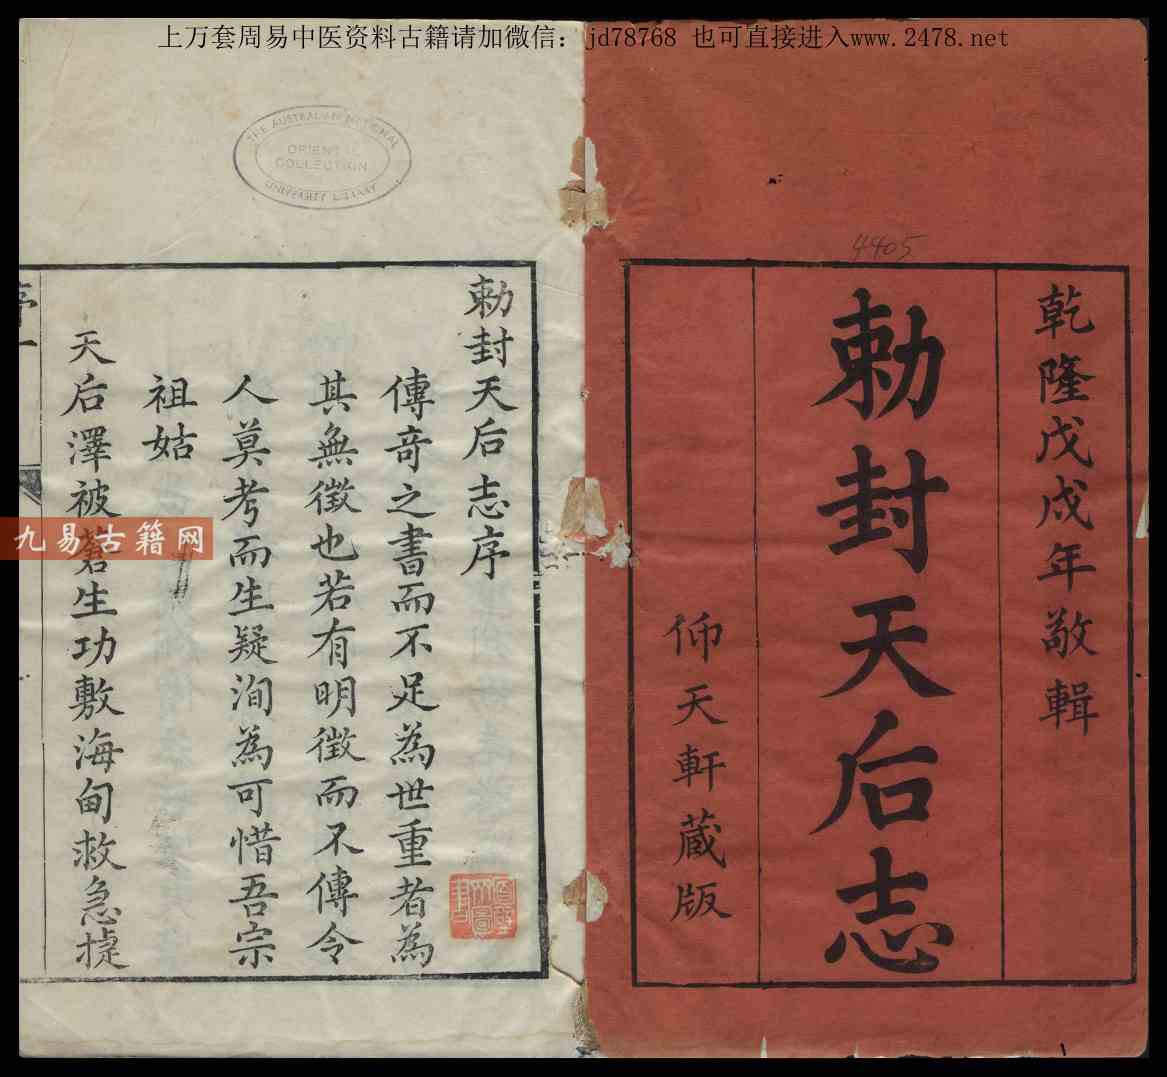 上万套周易中医资料古籍请加微信：jd78768 也可直接进入www.2478.net
4405
乾隆戊戌年敬輯
勅封天后志
仰天軒蔵版
THE AUSTRALIAN NATIONAL
ORIENTAL
COLLECTION
UNIVERSITY LIBRARY
勅封天后志序
傳竒之書而不足為世重者為
其無徵也若有明徵而不傳令
人莫考而生疑洵為可惜吾宗
祖姑
天后澤被蒼生功敷海甸救急㨗
九易古籍网